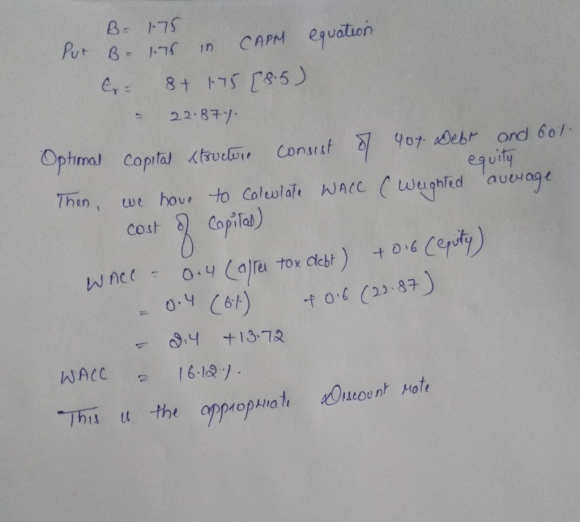 B = 1.75
Put B = 1.75 in CAPM equation
Er = 8 + 1.75 [8.5)
= 22.87%.
Optimal capital structure consist of 40% Debt and 60%.
equity
Then, we have to Calculate WACC (Weighted average
cost of Capital)
WACC = 0.4 (after tax debt) + 0.6 (equity)
= 0.4 (6%) + 0.6 (22.87)
= 2.4 + 13.72
WACC = 16.12%.
This is the appropriate Discount rate